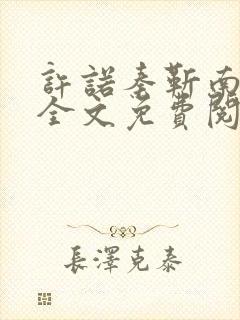 許諾秦靳南
全文免費閱
長澤克泰